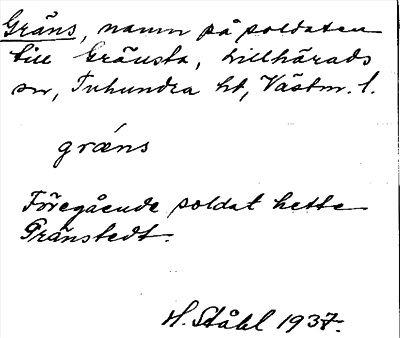 Gräns, namn på soldaten
till Gränsta, Lillhärads
sn, Tuhundra ht, Västm. l.
græ´ns
Föregående soldat hette
Gränstedt.
H. Ståhl 1937.